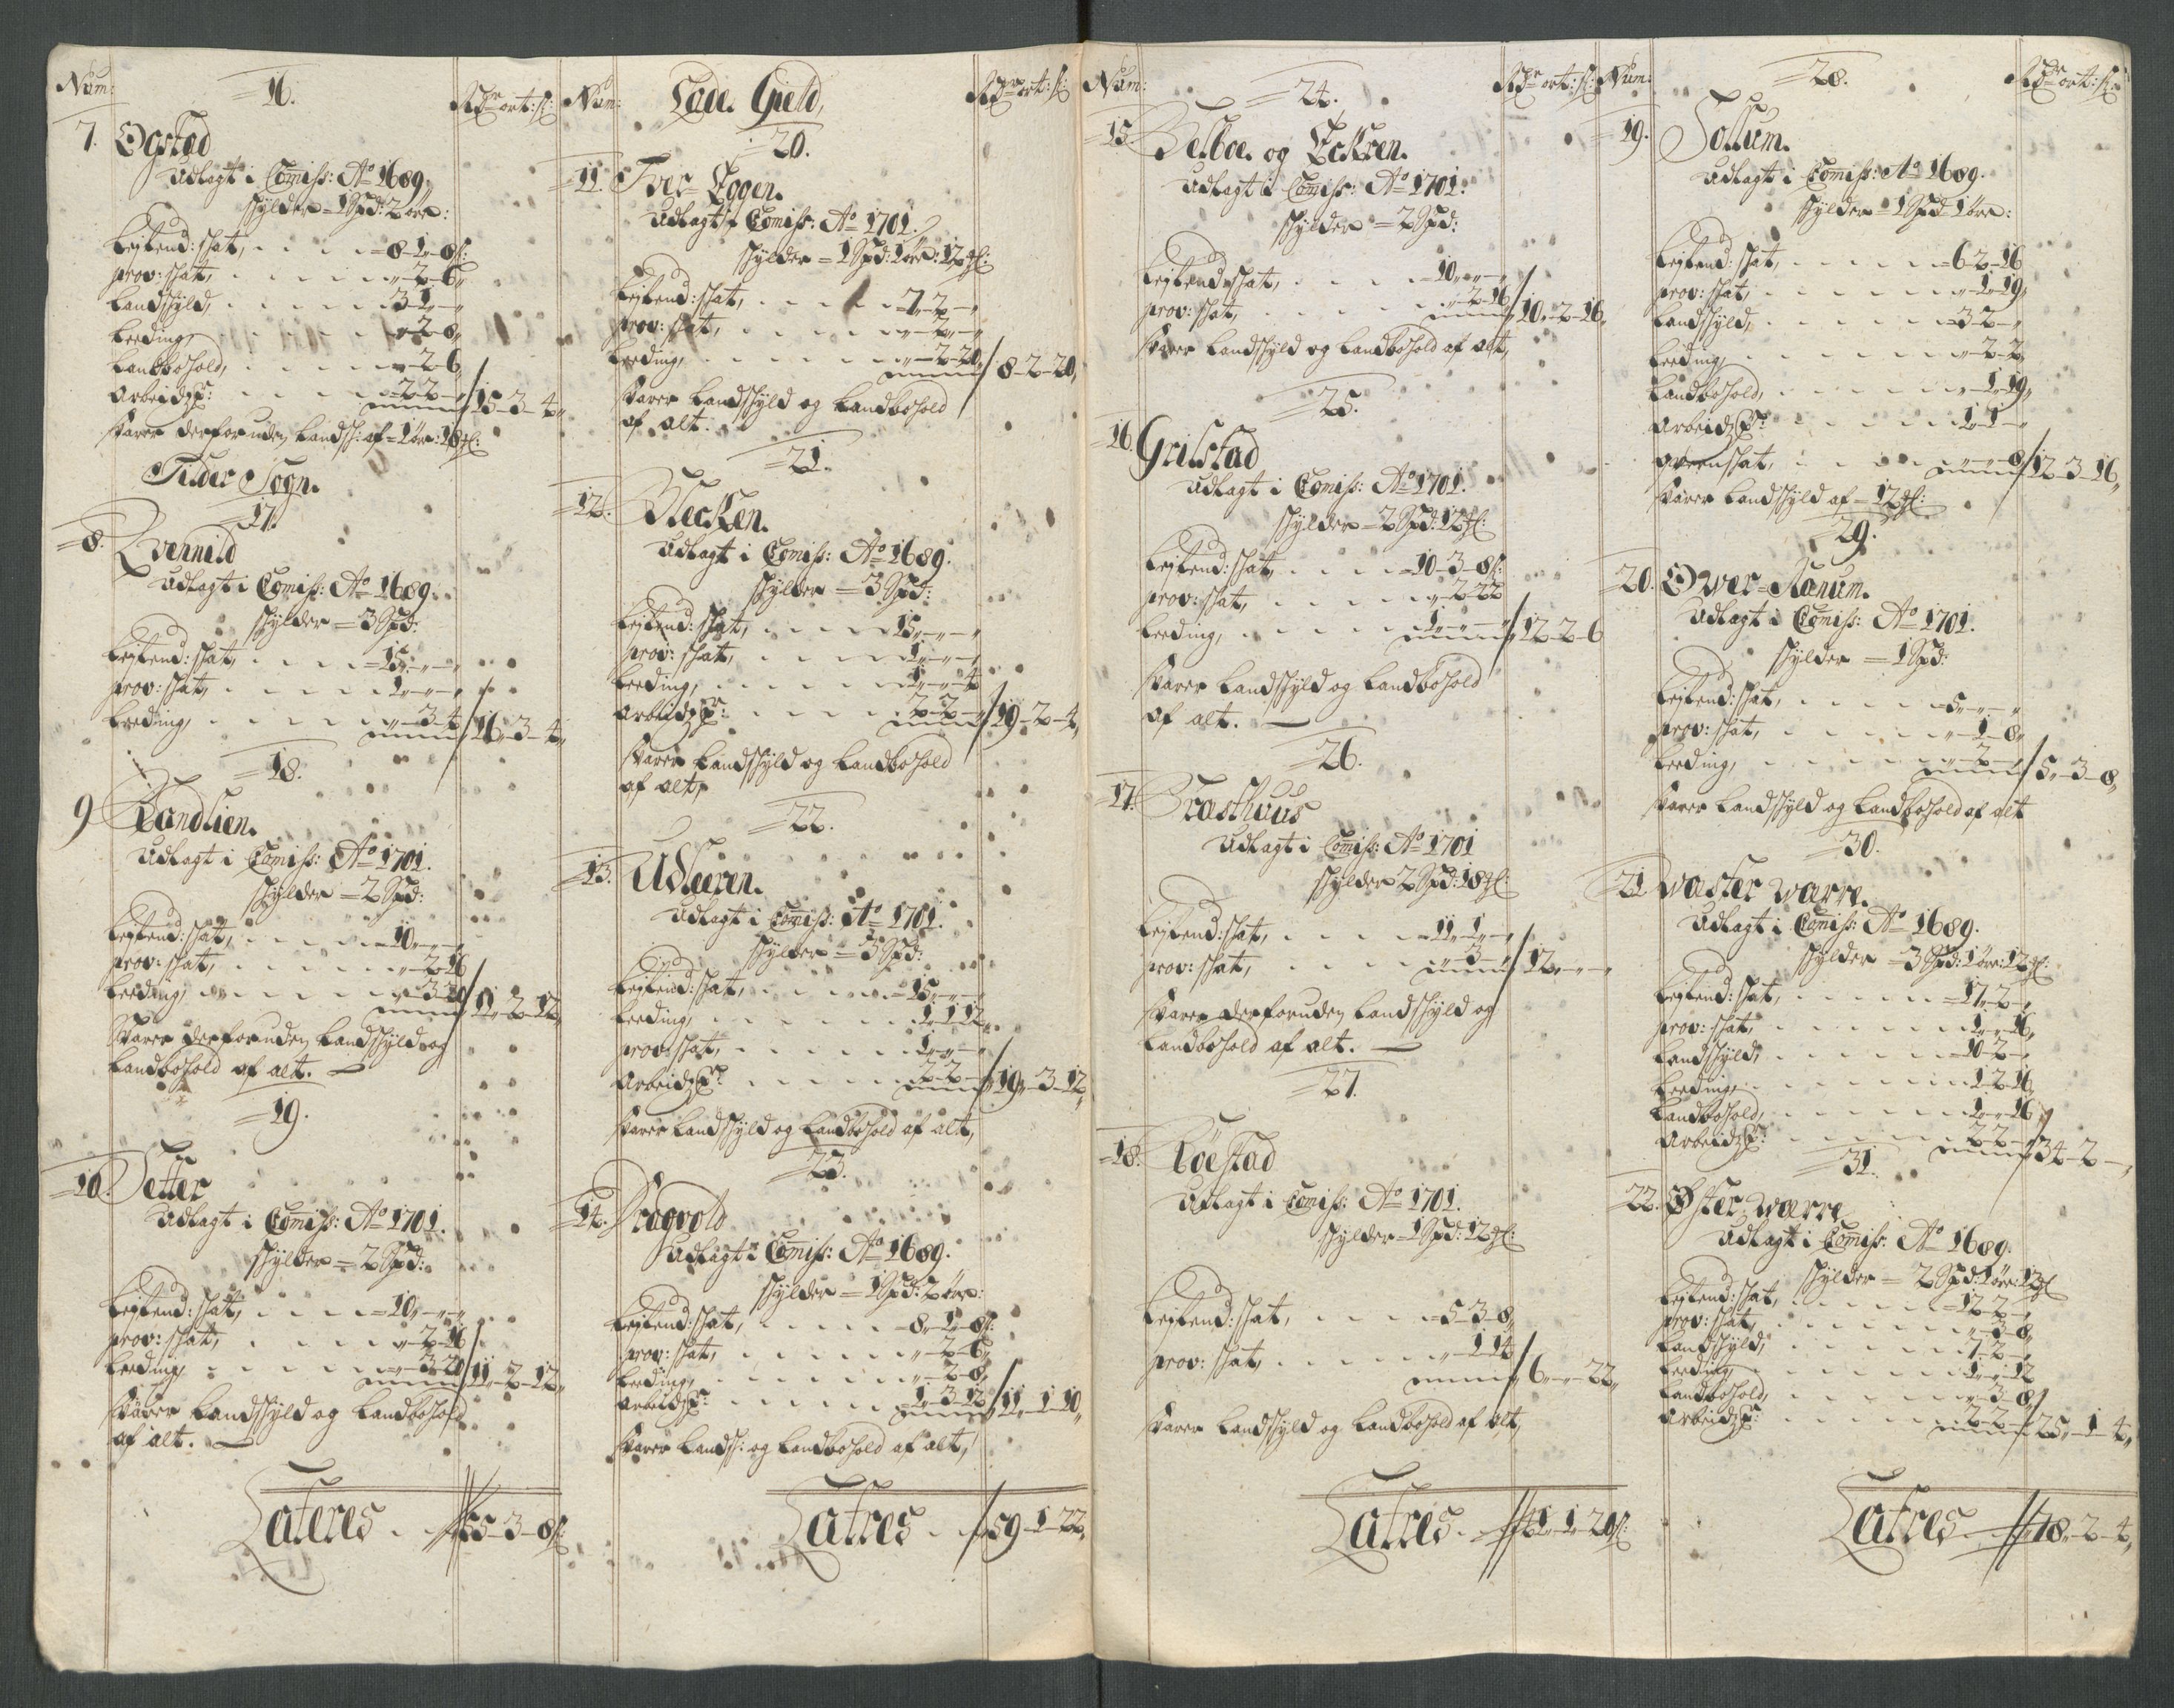 Num: 16. Rdr ort: s:
7. Øgstad
Udlagt i Comiss: Ao 1689.
skylder = 1 Spd: 2 øre:
Leilend: skat, 8-1-8s:
prov: skat, „-2-6,
Landskyld, 3-1-„
Leeding, „-2-8,
Landbohold, „-2-6,
Arbeidzp: 2-2-„ / 15-3-4„
Svarer derforuden Landsk: af = 1 øre: 18 gl:
Tilder Sogn.
17.
8. Qvennild
Udlagt i Comiss: Ao 1689.
skylder = 3 Spd:
Leilend: skat, 15-„-„
prov: skat, 1-„-„
Leeding, „-3-4 / 16-3-4„
18.
9 Sandlien.
Udlagt i Comiss: Ao 1701.
skylder = 2 Spd:
Leilend: skat, 10-„-„
prov: skat, „-2-16
Leeding, „-3-20 / 11-2-12,
Svarer derforuden Landskyld og
Landbohold af alt.
19.
10. Setter
Udlagt i Comiss: Ao 1701.
skylder = 2 Spd:
Leilend: skat, 10-„-„
prov: skat, „-2-16
Leeding, „-3-20 / 11-2-12,
Svarer Landskyld og Landbohold
af alt.
Lateres 55-3-8s:
Num: Lade Gield, Rdr ort: s:
20.
11. Iver Eggen.
Udlagt i Comiss: Ao 1701.
skylder = 1 Spd: 1 øre: 12 gl:
Leilend: skat, 7-2-„
prov: skat, „-2-„
Leeding, „-2-20, / 8-2-20,
Svarer Landskyld og Landbohold
af alt.
21.
12. Blecken.
Udlagt i Comiss: Ao 1689.
skylder = 3 Spd:
Leilend: skat, 15-„-„
prov: skat, 1-„-„
Leeding, 1-„-4
Arbeidzp: 2-2-„ / 19-2-4,
Svarer Landskyld og Landbohold
af alt,
22.
13. Udleeren.
Udlagt i Comiss: Ao 1701.
skylder = 3 Spd:
Leilend: skat, 15-„-„
Leeding, 1-1-12,
prov: skat, 1-„-„
Arbeidzp: 2-2-„ / 19-3-12,
Svarer Landskyld og Landbohold af alt,
23.
14. Dragvold
Udlagt i Comiss: Ao 1689.
skylder = 1 Spd: 2 øre:
Leilend: skat, 8-1-8s:
prov: skat, „-2-6,
Leeding, „-2-8,
Arbeidzp: 1-3-12 / 11-1-10,
Svarer Landsk: og Landbohold af alt,
Latres 59-1-22,
Num: 24. Rdr ort: s:
15. Belboe og Eckren.
Udlagt i Comiss: Ao 1701.
skylder = 2 Spd:
Leilend: skat, 10-„-„
prov: skat, „-2-16 / 10-2-16,
Svarer Landskyld og Landbohold af alt,
25.
16. Grilstad
Udlagt i Comiss: Ao 1701.
skylder = 2 Spd: 12 gl:
Leilend: skat, 10-3-8s:
prov: skat, „-2-22
Leeding, 1-„-„ / 12-2-6
Svarer Landskyld og Landbohold
af alt.
26.
17. Prasthuus
Udlagt i Comiss: Ao 1701
skylder 2 Spd: 18 gl:
Leilend: skat, 11-1-„
prov: skat, „-3-„ / 12-„-„
Svarer derforuden Landskyld og
Landbohold af alt.
27.
18. Röestad
Udlagt i Comiss: Ao 1701.
skylder = 1 Spd: 12 gl:
Leilend: skat, 5-3-8,
prov: skat, „-1-14 / 6-„-22,
Svarer Landskyld og Landbohold af alt,
Latres 41-1-20s:
Num: 28. Rdr ort: s:
19. Sollum.
Udlagt i Comiss: Ao 1689.
skylder = 1 Spd 1 øre:
Leilend: skat, 6-2-16
prov: skat, „-1-19,
Landskyld, 3-2-„
Leeding, „-2-2,
Landbohold, „-1-19,
Arbeidzp: 1-1-„
qvernskat, „-„-8 / 12-3-16,
Svarer Landskyld af = 12 gl:
29.
20. Øwer Ranum.
Udlagt i Comiss: Ao 1701.
skylder = 1 Spd:
Leilend: skat, 5-„-„
prov: skat, „-1-8,
Leeding, „-2-„ / 5-3-8,
Svarer Landskyld og Landbohold af alt
30.
21 waster warre.
Udlagt i Comiss: Ao 1689.
skylder = 3 Spd: 1 øre: 12 gl:
Leilend: skat, 17-2-„
prov: skat, 1-„-16,
Landskyld, 10-2-„
Leeding, 1-2-16,
Landbohold, 1-„-16,
Arbeidzp: 2-2-„ / 34-2-„,
31.
22. Øster warre
Udlagt i Comiss: Ao 1689.
skylder = 2 Spd: 1 øre: 12 gl
Leilend: skat, 12-2-„
prov: skat, „-3-8,
Landskyld, 7-2-„
Leeding, 1-„-12
Landbohold, „-3-8,
Arbeidzp: 2-2-„ / 25-1-4,
Latres 78-2-4,